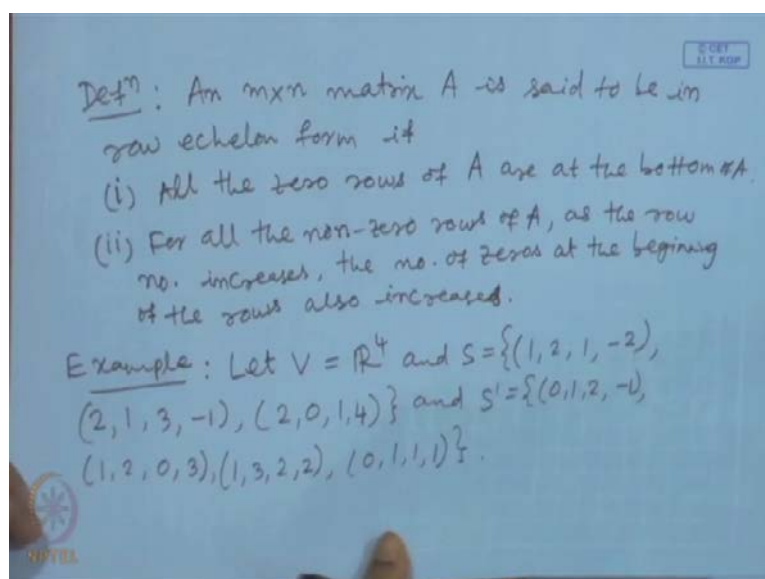 © CET
I.I.T. KGP
Defⁿ : An m×n matrix A is said to be in
row echelon form if
(i) All the zero rows of A are at the bottom of A.
(ii) For all the non-zero rows of A, as the row
no. increases, the no. of zeros at the begining
of the rows also increases.
Example : Let V = ℝ⁴ and S = {(1, 2, 1, -2),
(2, 1, 3, -1), (2, 0, 1, 4)} and S' = {(0, 1, 2, -1),
(1, 2, 0, 3), (1, 3, 2, 2), (0, 1, 1, 1)}.
NPTEL